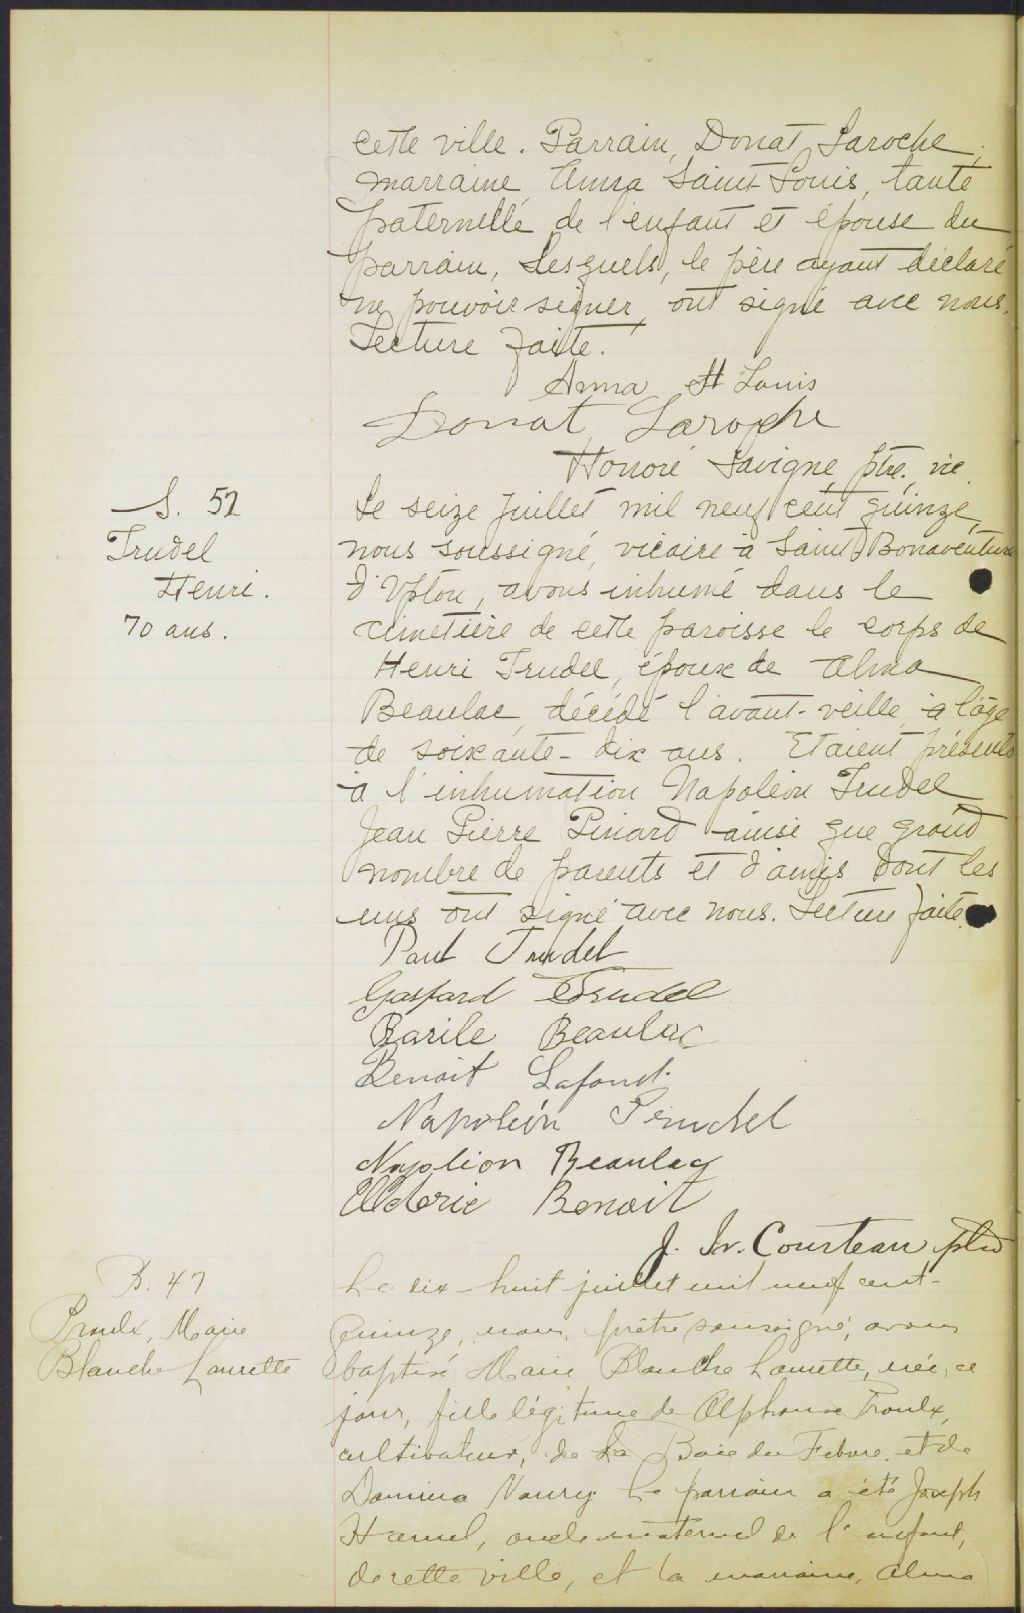 cette ville. Parrain, Donat Laroche,
marraine Anna Saint-Louis, tante
paternelle de l'enfant et épouse du
parrain, Lesquels, le père ayant déclaré
ne pouvoir signer, ont signé avec nous.
Lecture faite.
Anna St Louis
Donat Laroche
Honoré Lavigne, ptre, vic.
S. 52
Trudel
Henri.
70 ans.
Le seize Juillet mil neuf cent quinze,
nous soussigné, vicaire à Saint Bonaventure
d'Upton, avons inhumé dans le
cimetière de cette paroisse le corps de
Henri Trudel, époux de Alma
Beaulac, décédé l'avant-veille à l'âge
de soixante-dix ans. Etaient présents
à l'inhumation Napoléon Trudel
Jean Pierre Pinard ainsi que grand
nombre de parents et d'amis dont les
uns ont signé avec nous. Lecture faite.
Paul Trudel
Gaspard Trudel
Basile Beaulac
Benoit Lafond.
Napoléon Trudel
Napolion Beaulac
Benoit
Courteau ptre
B. 47
Proulx, Marie
Blanche Laurette
Le dix-huit juillet mil neuf cent-
quinze, nous, prêtre soussigné, avons
baptisé Marie Blanche Laurette, née, ce
jour, fille légitime de Alphonse Proulx,
cultivateur, de La Baie du Febvre, et de
Damina Noury. Le parrain a été Joseph
Hamel, oncle maternel de l'enfant,
de cette ville, et la marraine, Alma